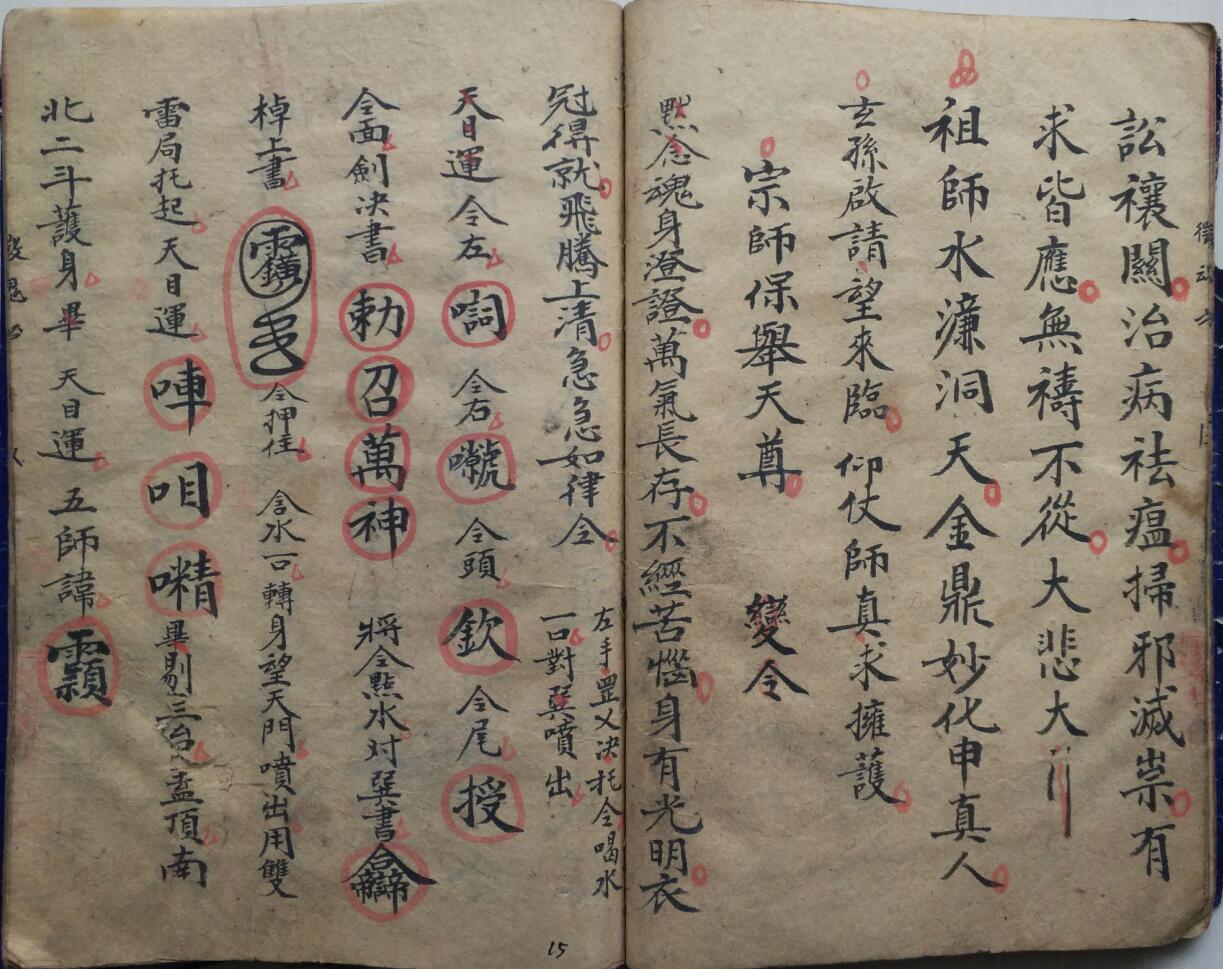 訟禳關治病祛瘟掃邪滅祟有
求皆應無禱不從大悲大
祖師水濂洞天金鼎妙化申真人
玄孫啟請望來臨仰仗師真求擁護
宗師保舉天尊 變令
默念魂身澄證萬氣長存不經苦惱身有光明衣
冠得就飛騰上清急急如律令
左手罡乂决托令喝水
一口對巽噴出
天目運令左 令右 令頭欽令尾授
令面劍决書勅召萬神 將令點水对巽書
棹上書 令押住 含水一口轉身望天門噴出用雙
雷局托起天目運 咀 畢剔三台盖頂南
北二斗護身畢 天目運 五師諱
15